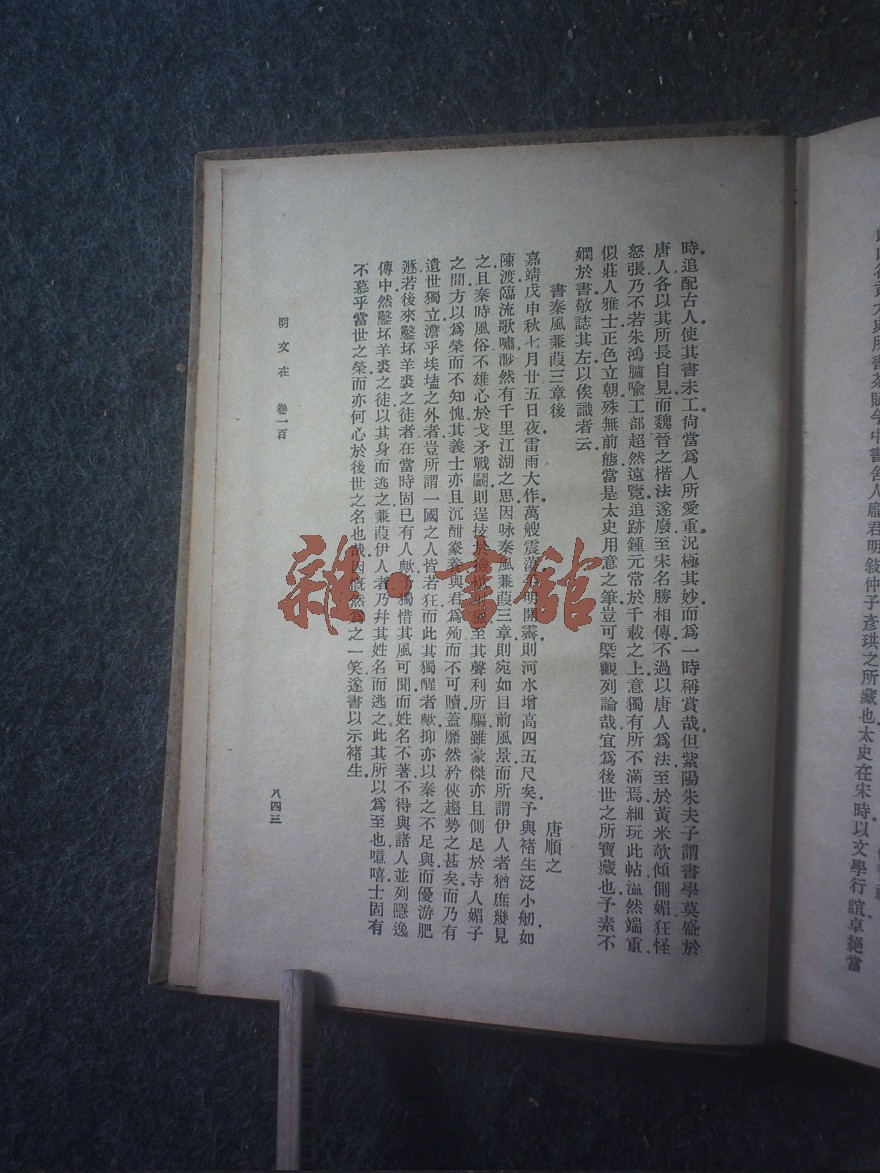 時追配古人使其書未工尙當爲人所愛重況極其妙而爲一時稱賞哉但紫陽朱夫子謂書學莫盛於
唐人各以其所長自見而魏晉之楷法遂廢至宋名勝相傳不過以唐人爲法至於黃米欹傾側媚狂怪
怒張乃不若朱鴻臚喩工部超然遠覽追跡鍾元常於千載之上意獨有所不滿焉細玩此帖溫然端重
似莊人雅士正色立朝殊無前態當是太史用意之筆豈可槩觀列論哉宜爲後世之所寶藏也予素不
嫻於書敬誌其左以俟識者云
書秦風蒹葭三章後
唐順之
嘉靖戊申秋七月廿五日夜雷雨大作萬艘震蕩明開霽則河水增高四五尺矣予與褚生泛小舠如
陳渡臨流歌嘯渺然有千里江湖之思因咏秦風蒹葭三章則宛如目前風景而所謂伊人者猶庶幾見
之且秦時風俗不雄心於戈矛戰鬭則逞技於至其聲利所驅雖豪傑亦且側足於寺人媚子
之間方以爲榮而不知愧其義士亦且沉酣豢養與君爲殉而不可贖蓋靡然矜俠趨勢之甚矣而乃有
遺世獨立澹乎埃壒之外者豈所謂一國之人皆若狂而此其獨醒者歟抑亦以秦之不足與而優游肥
遯若後來鑿坏羊裘之徒者在當時固已有人歟獨惜其風可聞而姓名不著不得與諸人並列隱逸
傳中然鑿坏羊裘之徒以其身而逃之蒹葭伊人者乃幷其姓名而逃之此其所以爲至也噫嘻士固有
不慕乎當世之榮而亦何心於後世之名也哉因慨然爲之一笑遂書以示褚生
明文在 卷一百
八四三
書茶賦今中書舍人龐君明敍仲子彥珙之所藏也太史在宋時以文學行誼卓絕當
雜·書館